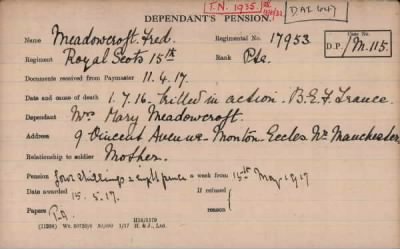 T.N. 1935.
D.A.I. 447
DEPENDANT'S PENSION.
Name Meadowcroft. Fred. Regimental No. 17953
Case No.
D.P. / M.115.
Regiment Royal Scots 15th Rank Pte.
Documents received from Paymaster 11.4.17.
Date and cause of death 1.7.16. Killed in action. B.E.F. France.
Dependant Mrs Mary Meadowcroft.
Address 9 Vincent Avenue Monton Eccles Nr Manchester
Relationship to soldier Mother.
Pension four shillings & eight pence a week from 15th May 1917
Date awarded 15.5.17. If refused
reason
Papers
H16/1179
(11298) Wt. 1/17 H. & J., Ltd.